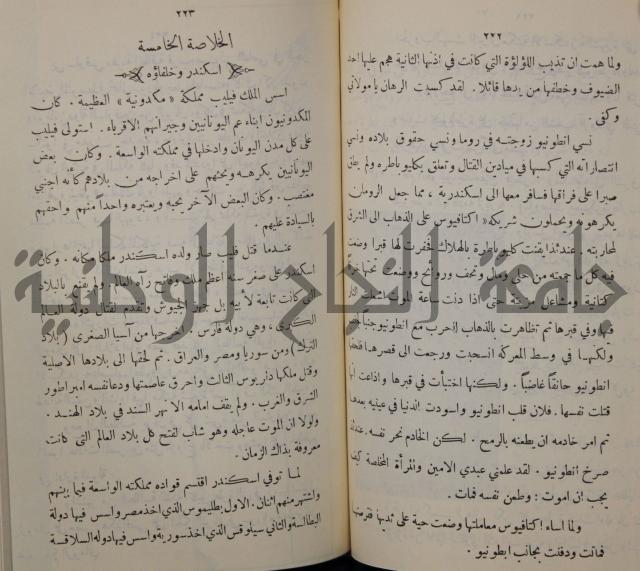 ٢٢٢
ولما همت ان تذيب اللؤلؤة التي كانت في اذنها الثانية هجم عليها احد
الضيوف وخطفها من يدها قائلا . لقد كسبت الرهان يا مولاتي
وكفى .
نسي انطونيو زوجته في روما ونسي حقوق بلاده ونسي
انتصاراته التي كسبها في ميادين القتال وتعلق بكليوباطره ولم يطق
صبرا على فراقها فسافر معها الى اسكندرية ، مما جعل الرومان
يكرهونه ويحملون شريكه « اكتافيوس على الذهاب الى الشرق
لمحاربته . عندئذ ايقنت كليوباطرة بالهلاك فحفرت لها قبرا وضعت
فيه كل ما جمعته من حلي ومال وتحف وروائح ووضعت تحتها
كتانية ومشاعل مزيتة حتى اذا دنت ساعة الموت اشعلت
فيها وفي قبرها ثم تظاهرت بالذهاب الى الحرب مع انطونيو جنبا
ولكنها في وسط المعركة انسحبت ورجعت الى قصرها
انطونيو حانقاً غاضباً . ولكنها اختبأت في قبرها واذاعت انها
قتلت نفسها . فلان قلب انطونيو واسودت الدنيا في عينيه بعدها
ثم امر خادمه ان يطعنه بالرمح . لكن الخادم نحر نفسه . عندئذ
صرخ انطونيو . لقد علمني عبدي الامين والمرأة المخلصة كيف
يجب ان اموت : وطعن نفسه فمات .
ولما اساء اكتافيوس معاملتها وضعت حية على ثديها فقرصتها
فماتت ودفنت بجانب انطونيو .
٢٢٣
الخلاصة الخامسة
اسكندر وخلفاؤه
اسس الملك فيليب مملكة « مكدونية » العظيمة . كان
المكدونيون ابناء عم اليونانيين وجيرانهم الاقرباء . استولى فيليب
على كل مدن اليونان وادخلها في مملكته الواسعة . وكان بعض
اليونانيين يكرهه ويحثهم على اخراجه من بلادهم كأنه اجنبي
مغتصب . وكان البعض الآخر يحبه ويعتبره واحداً منهم واحقهم
بالسيادة عليهم .
عندما قتل فيليب صار ولده اسكندر ملكا مكانه . وكان
اسكندر على صغر سنه اعظم ملك وفاتح رآه العالم . ولم يقنع بالبلاد
التي كانت تابعة لأبيه بل جهز الجيوش وتقدم لقتال دولة العالم
الكبرى ، وهي دولة فارس . فاخرجها من آسيا الصغرى ( بلاد
الترك ) ومن سوريا ومصر والعراق . ثم لحقها الى بلادها الاصلية
وقتل ملكها داريوس الثالث واحرق عاصمتها ودعا نفسه امبراطور
الشرق والغرب . ولم يقف امامه الا نهر السند في بلاد الهند .
ولولا ان الموت عاجله وهو شاب لفتح كل بلاد العالم التي كانت
معروفة بذلك الزمان .
لما توفي اسكندر اقتسم قواده مملكته الواسعة فيما بينهم
واشتهر منهم اثنان . الاول بطليموس الذي اخذ مصر واسس فيها دولة
البطالسة والثاني سيلوقس الذي اخذ سورية واسس فيها دولة السلاقسة
جامعة النجاح الوطنية